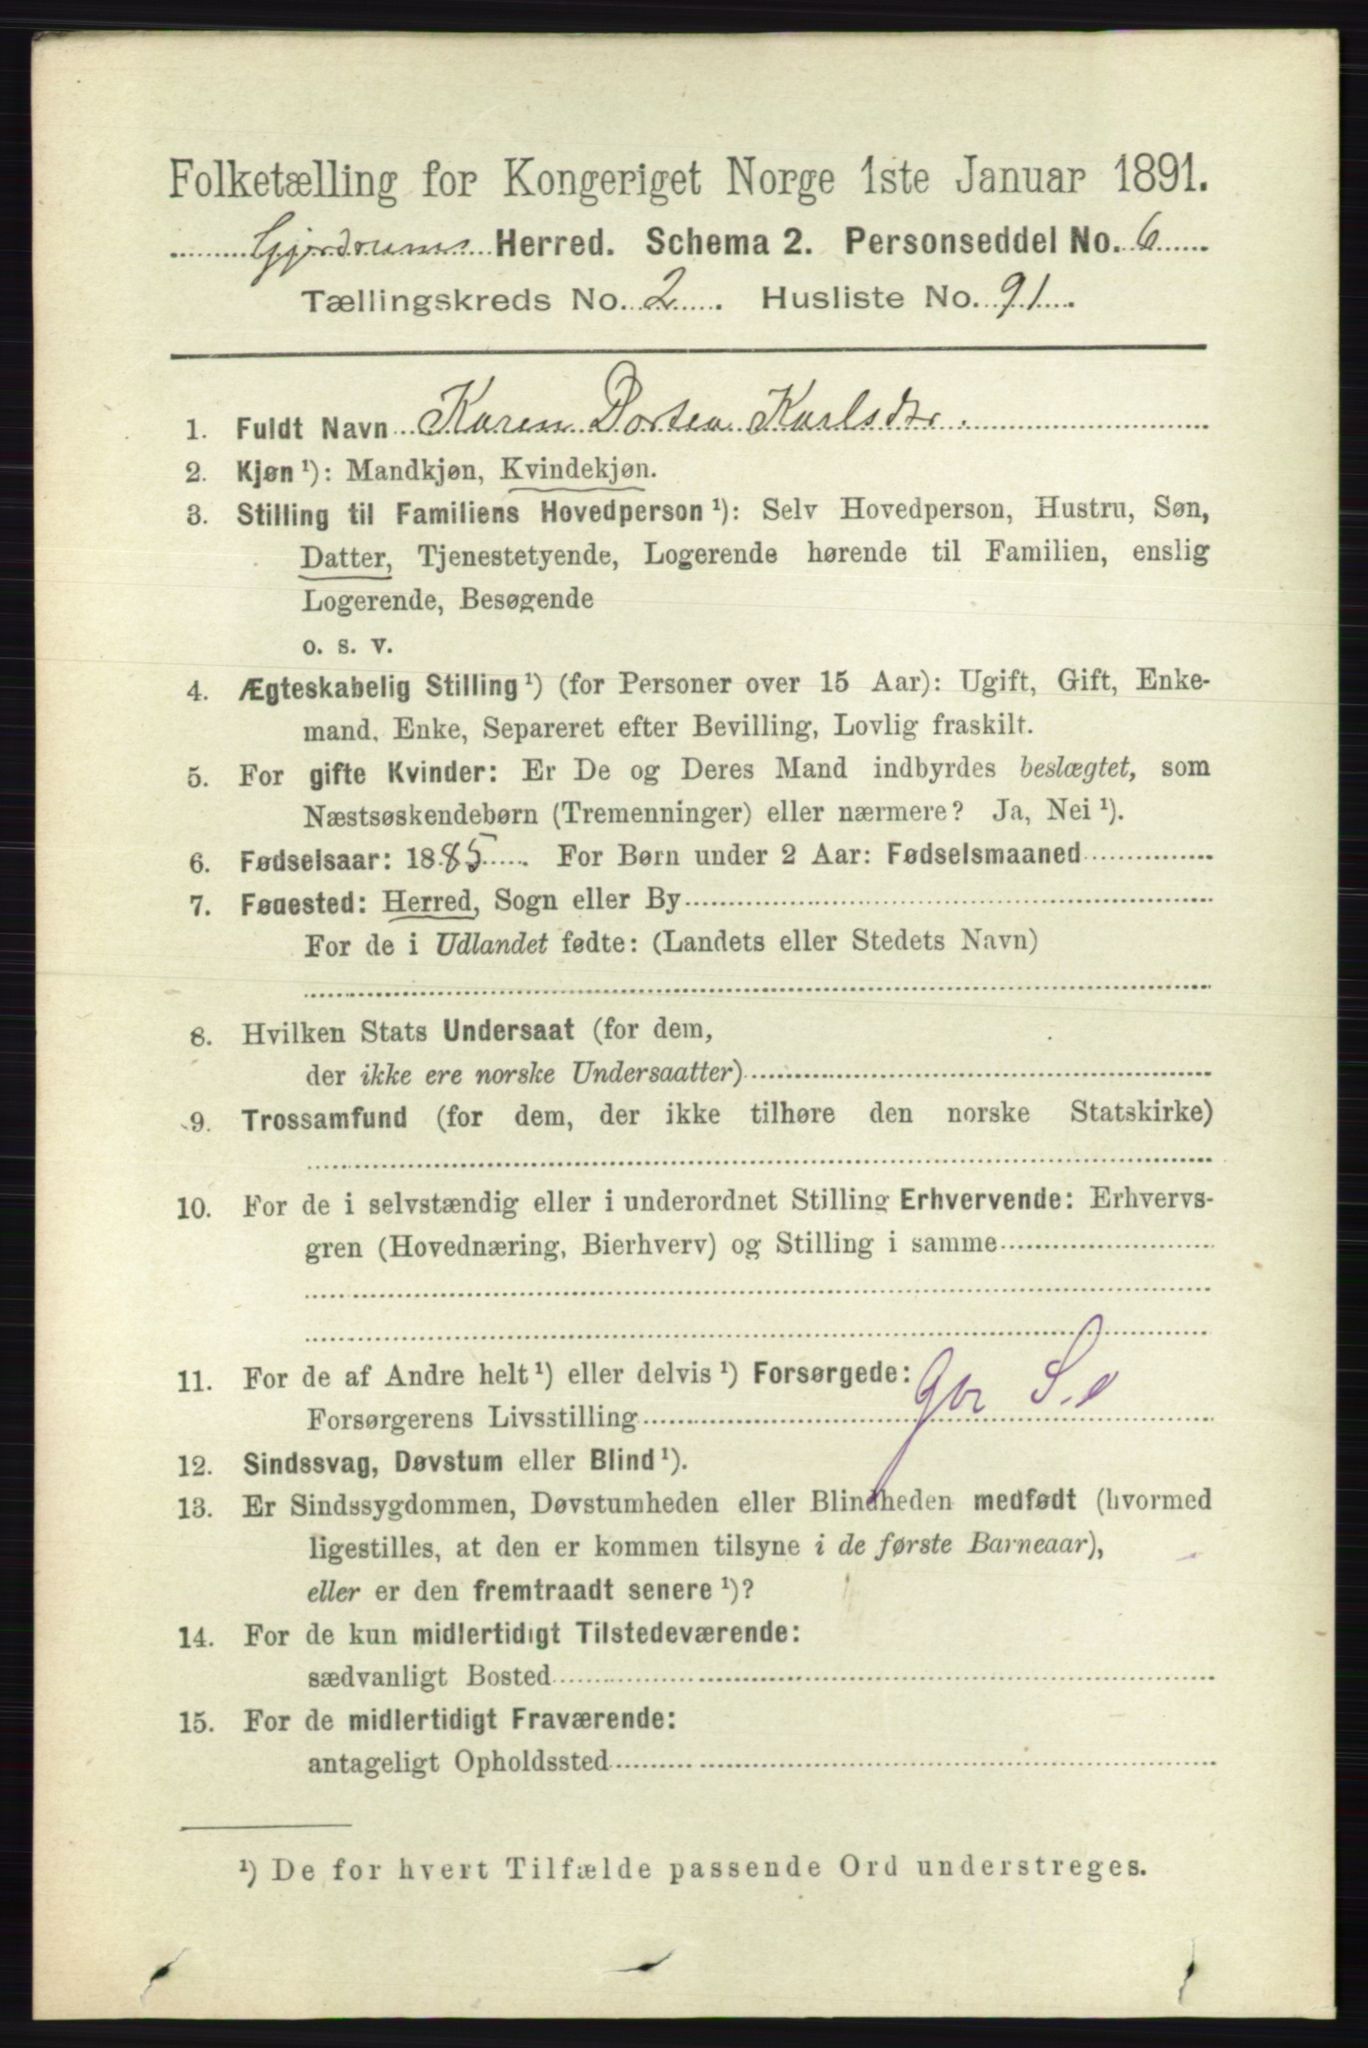 Folketælling for Kongeriget Norge 1ste Januar 1891.
Gjerdrums Herred. Schema 2. Personseddel No. 6
Tællingskreds No. 2. Husliste No. 91.
1. Fuldt Navn Karen Dortea Karlsdtr.
2. Kjøn ¹): Mandkjøn, Kvindekjøn.
3. Stilling til Familiens Hovedperson ¹): Selv Hovedperson, Hustru, Søn,
Datter, Tjenestetyende, Logerende hørende til Familien, enslig
Logerende, Besøgende
o. s. v.
4. Ægteskabelig Stilling ¹) (for Personer over 15 Aar): Ugift, Gift, Enke-
mand, Enke, Separeret efter Bevilling, Lovlig fraskilt.
5. For gifte Kvinder: Er De og Deres Mand indbyrdes beslægtet, som
Næstsøskendebørn (Tremenninger) eller nærmere? Ja, Nei ¹).
6. Fødselsaar: 1885. For Børn under 2 Aar: Fødselsmaaned
7. Fødested: Herred, Sogn eller By
For de i Udlandet fødte: (Landets eller Stedets Navn)
8. Hvilken Stats Undersaat (for dem,
der ikke ere norske Undersaatter)
9. Trossamfund (for dem, der ikke tilhøre den norske Statskirke)
10. For de i selvstændig eller i underordnet Stilling Erhvervende: Erhvervs-
gren (Hovednæring, Bierhverv) og Stilling i samme
11. For de af Andre helt ¹) eller delvis ¹) Forsørgede:
Forsørgerens Livsstilling
12. Sindssvag, Døvstum eller Blind ¹).
13. Er Sindssygdommen, Døvstumheden eller Blindheden medfødt (hvormed
ligestilles, at den er kommen tilsyne i de første Barneaar),
eller er den fremtraadt senere ¹)?
14. For de kun midlertidigt Tilstedeværende:
sædvanligt Bosted
15. For de midlertidigt Fraværende:
antageligt Opholdssted
¹) De for hvert Tilfælde passende Ord understreges.